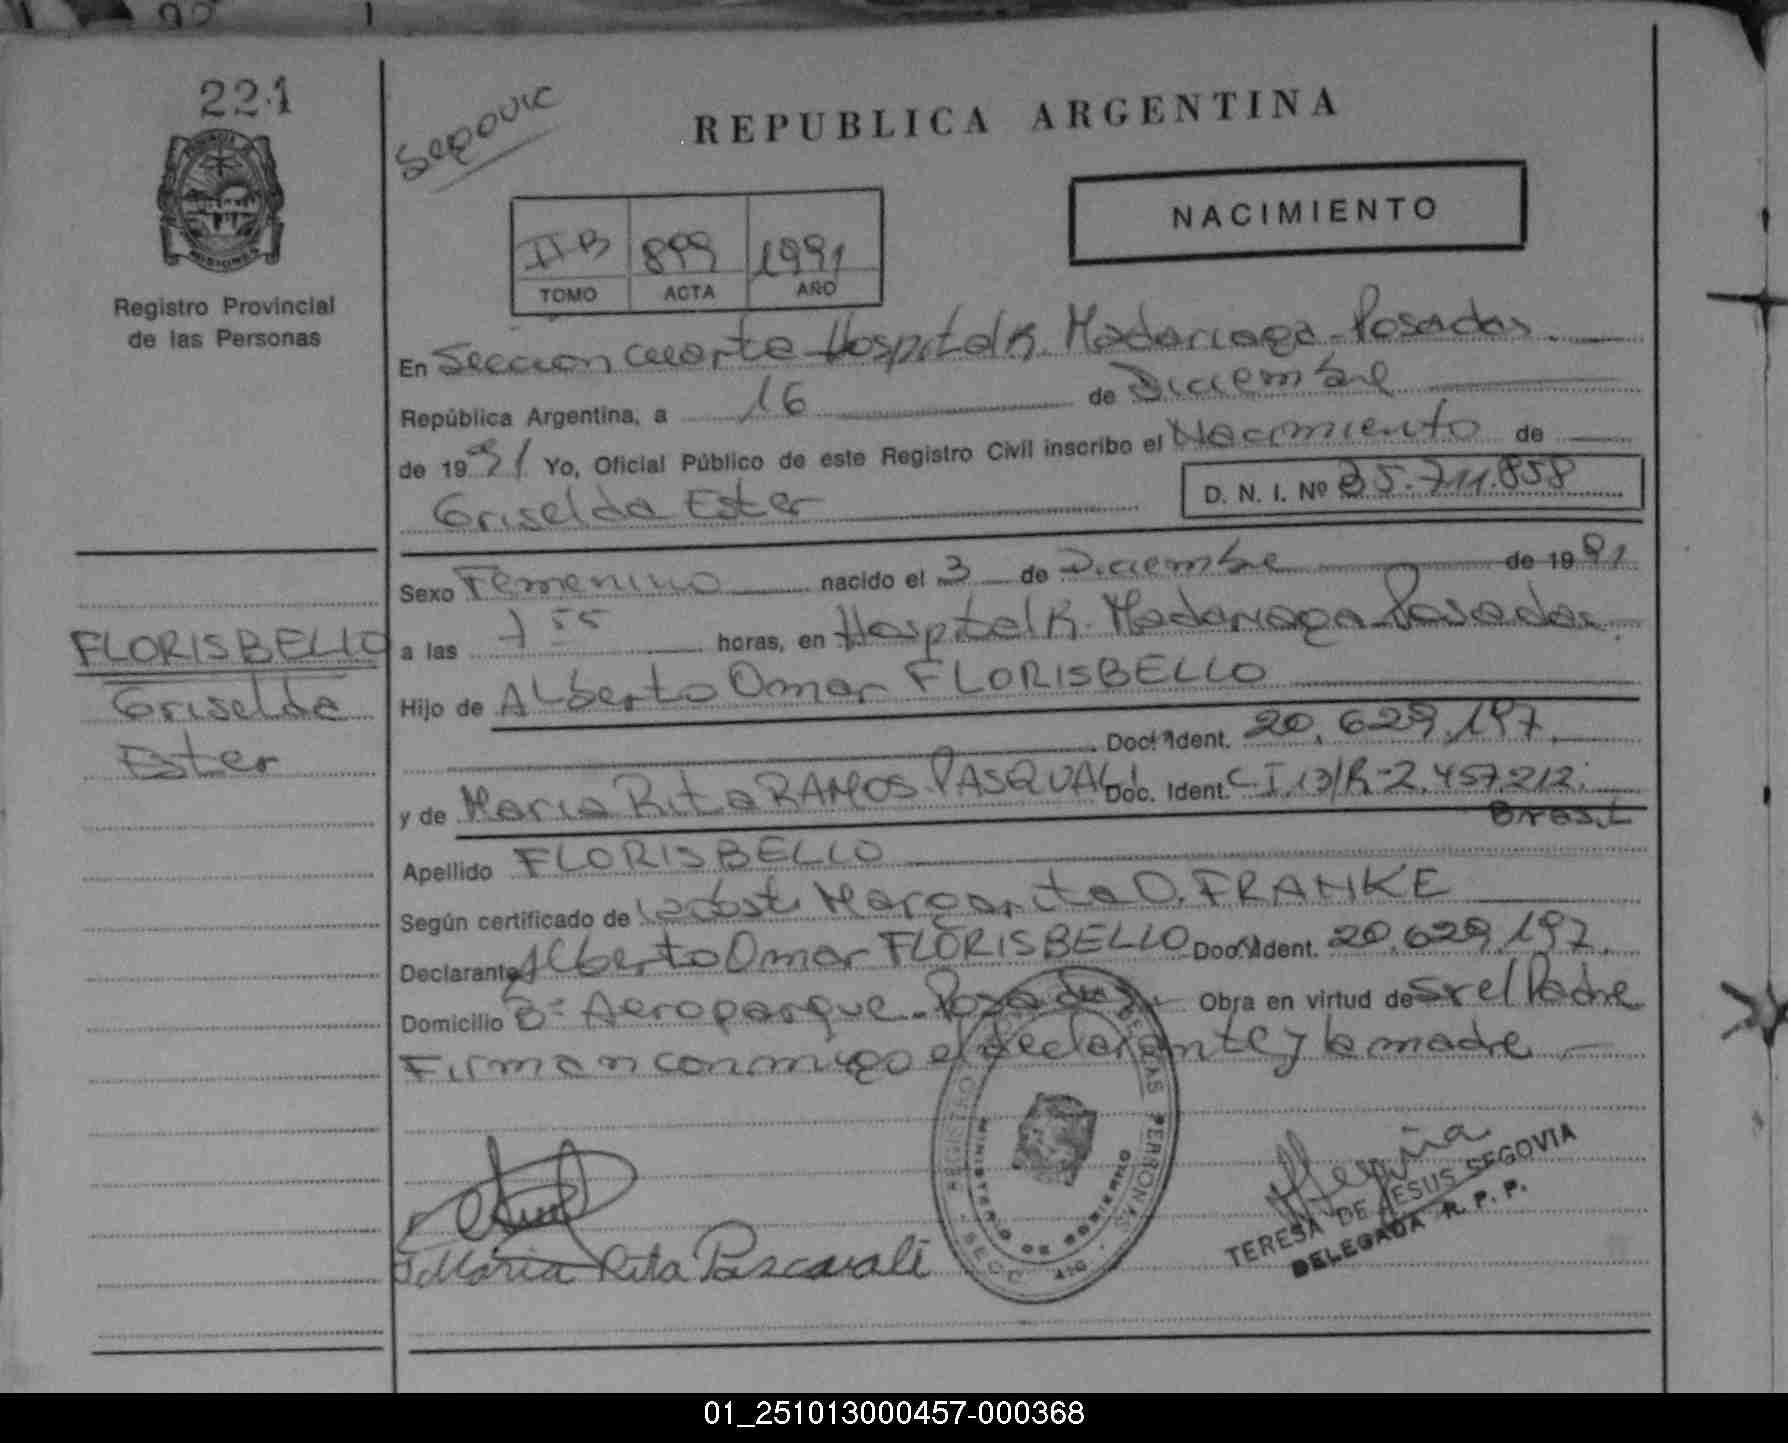 221
REPUBLICA ARGENTINA
NACIMIENTO
MISIONES
Registro Provincial
de las Personas
II-B 899 1991
TOMO ACTA AÑO
En Seccion cuarta Hospital R. Madariaga - Posadas
República Argentina, a 16 de Diciembre
de 1991 Yo, Oficial Público de este Registro Civil inscribo el Nacimiento de
Griselda Ester D. N. I. Nº 35.711.858
Sexo Femenino nacido el 3 de Diciembre de 1991
a las 7 55 horas, en Hospital R. Madariaga - Posadas.
Hijo de Alberto Omar FLORISBELLO
Doc. Ident. 20.629.197
y de Maria Rita RAMOS PASQUALI Doc. Ident. C.I. 13/R-2.457.212.
Brasil
Apellido FLORISBELLO
Según certificado de Margarita O. FRANKE
Declarante Alberto Omar FLORISBELLO Doc. Ident. 20.629.197.
Domicilio Bº Aeroparque - Posadas - Obra en virtud de Ser el Padre
Firman conmigo el declarante y la madre
FLORISBELLO
Griselda
Ester
REGISTRO DE LAS PERSONAS
MINISTERIO DE GOBIERNO
Maria Rita Pascavali
TERESA DE JESUS SEGOVIA
DELEGADA R. P. P.
01_251013000457-000368